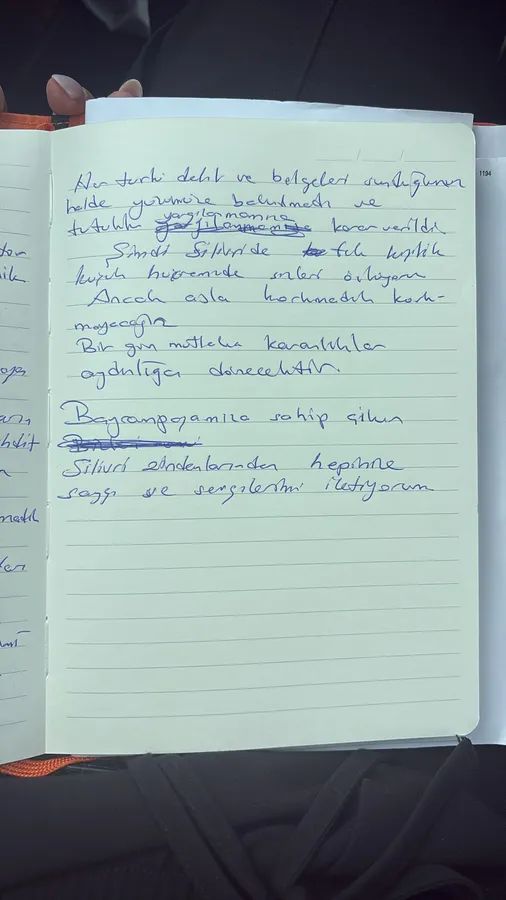 Her türlü delil ve belgeleri sunduğumuz
halde yüzümüze bakılmadı ve
tutuklu yargılanmamıza karar verildi.
Şimdi Silivri'de tek kişilik
küçük hücremde sizleri özlüyorum
Ancak asla korkmadık kork-
mayacağız
Bir gün mutlaka karanlıklar
aydınlığa dönecektir.
Bayrampaşamıza sahip çıkın
Silivri zindanlarından hepinize
saygı ve sevgilerimi iletiyorum
1194